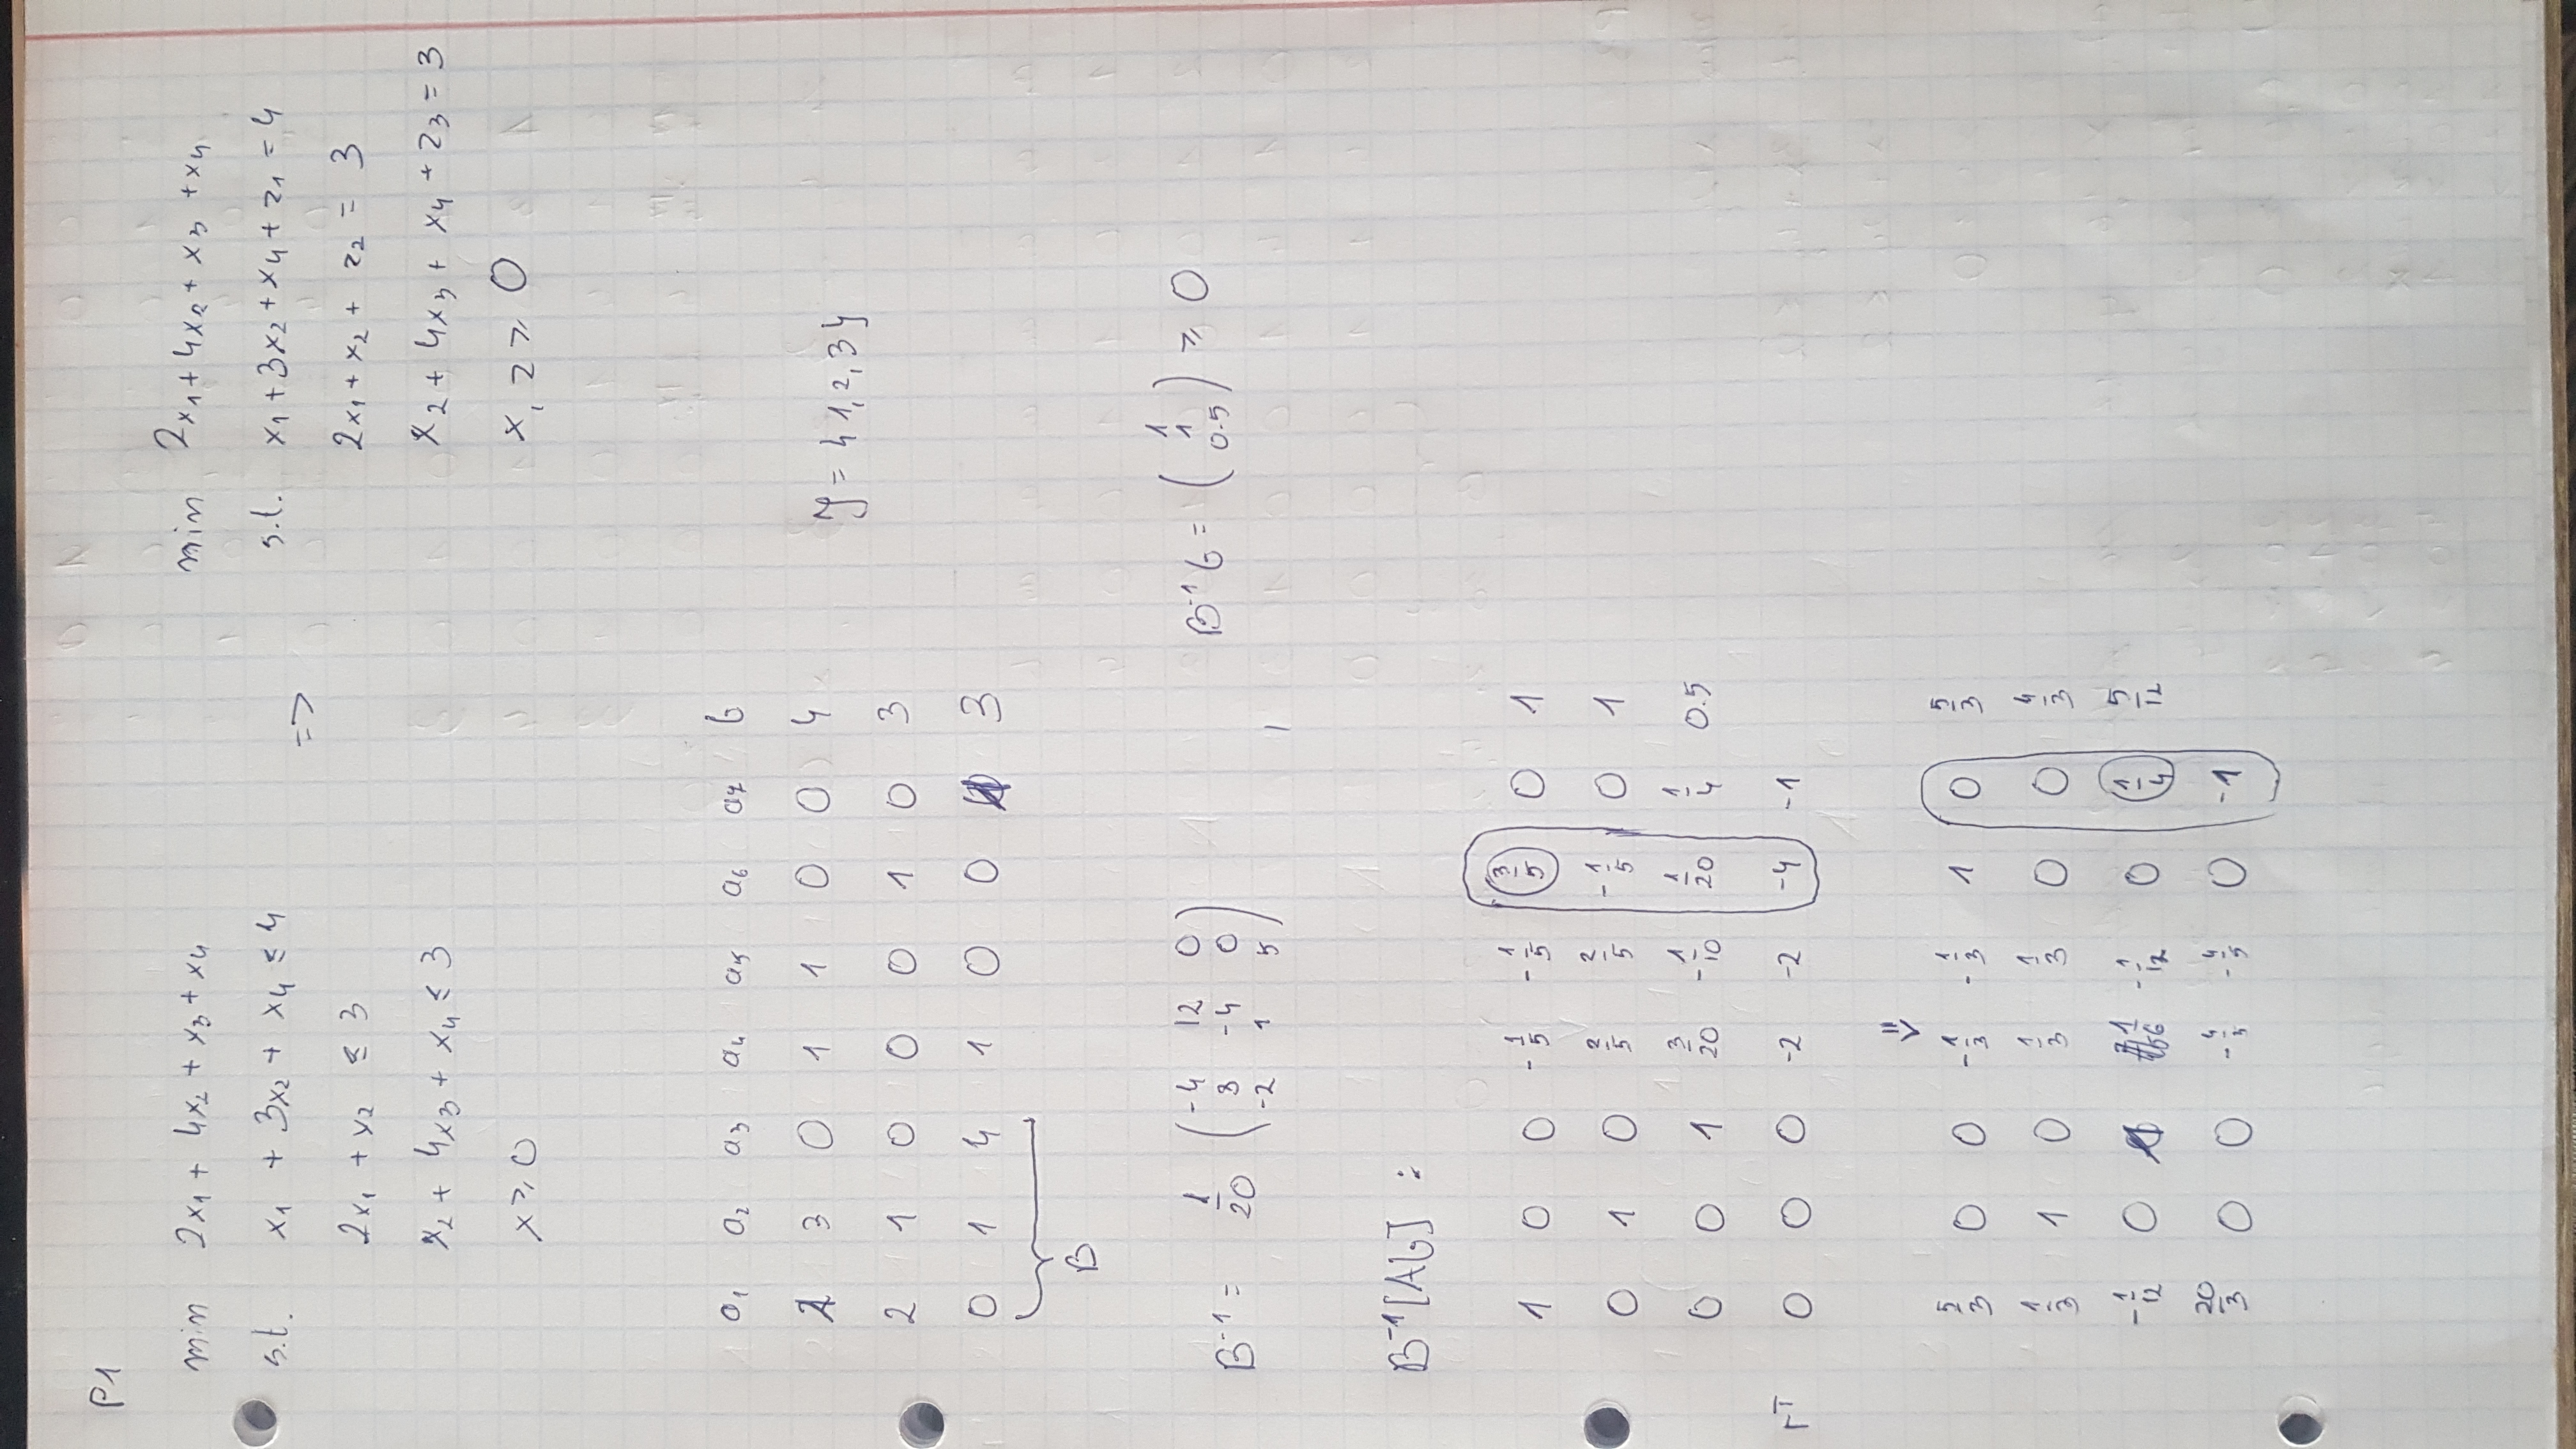 P1
min 2x₁ + 4x₂ + x₃ + x₄
s.t. x₁ + 3x₂ + x₄ ≤ 4
2x₁ + x₂ ≤ 3
x₂ + 4x₃ + x₄ ≤ 3
x ≥ 0
=>
min 2x₁ + 4x₂ + x₃ + x₄
s.t. x₁ + 3x₂ + x₄ + z₁ = 4
2x₁ + x₂ + z₂ = 3
x₂ + 4x₃ + x₄ + z₃ = 3
x, z ≥ 0
a₁ a₂ a₃ a₄ a₅ a₆ a₇ b
1 3 0 1 1 0 0 4
2 1 0 0 0 1 0 3
0 1 4 1 0 0 1 3
B
J = {1, 2, 3}
B⁻¹ = 1/20 ( -4 12 0
3 -4 0
-2 1 5 )
B⁻¹b = ( 1
1
0.5 ) ≥ 0
B⁻¹[Ab] :
1 0 0 -1/5 -1/5 3/5 0 1
0 1 0 2/5 2/5 -1/5 0 1
0 0 1 3/20 -1/10 1/20 1/4 0.5
rᵀ 0 0 0 -2 -2 -4 -1
⇓
5/3 0 0 -1/3 -1/3 1 0 5/3
1/3 1 0 1/3 1/3 0 0 4/3
-1/12 0 1 1/6 -1/12 0 1/4 5/12
20/3 0 0 -4/3 -4/5 0 -1